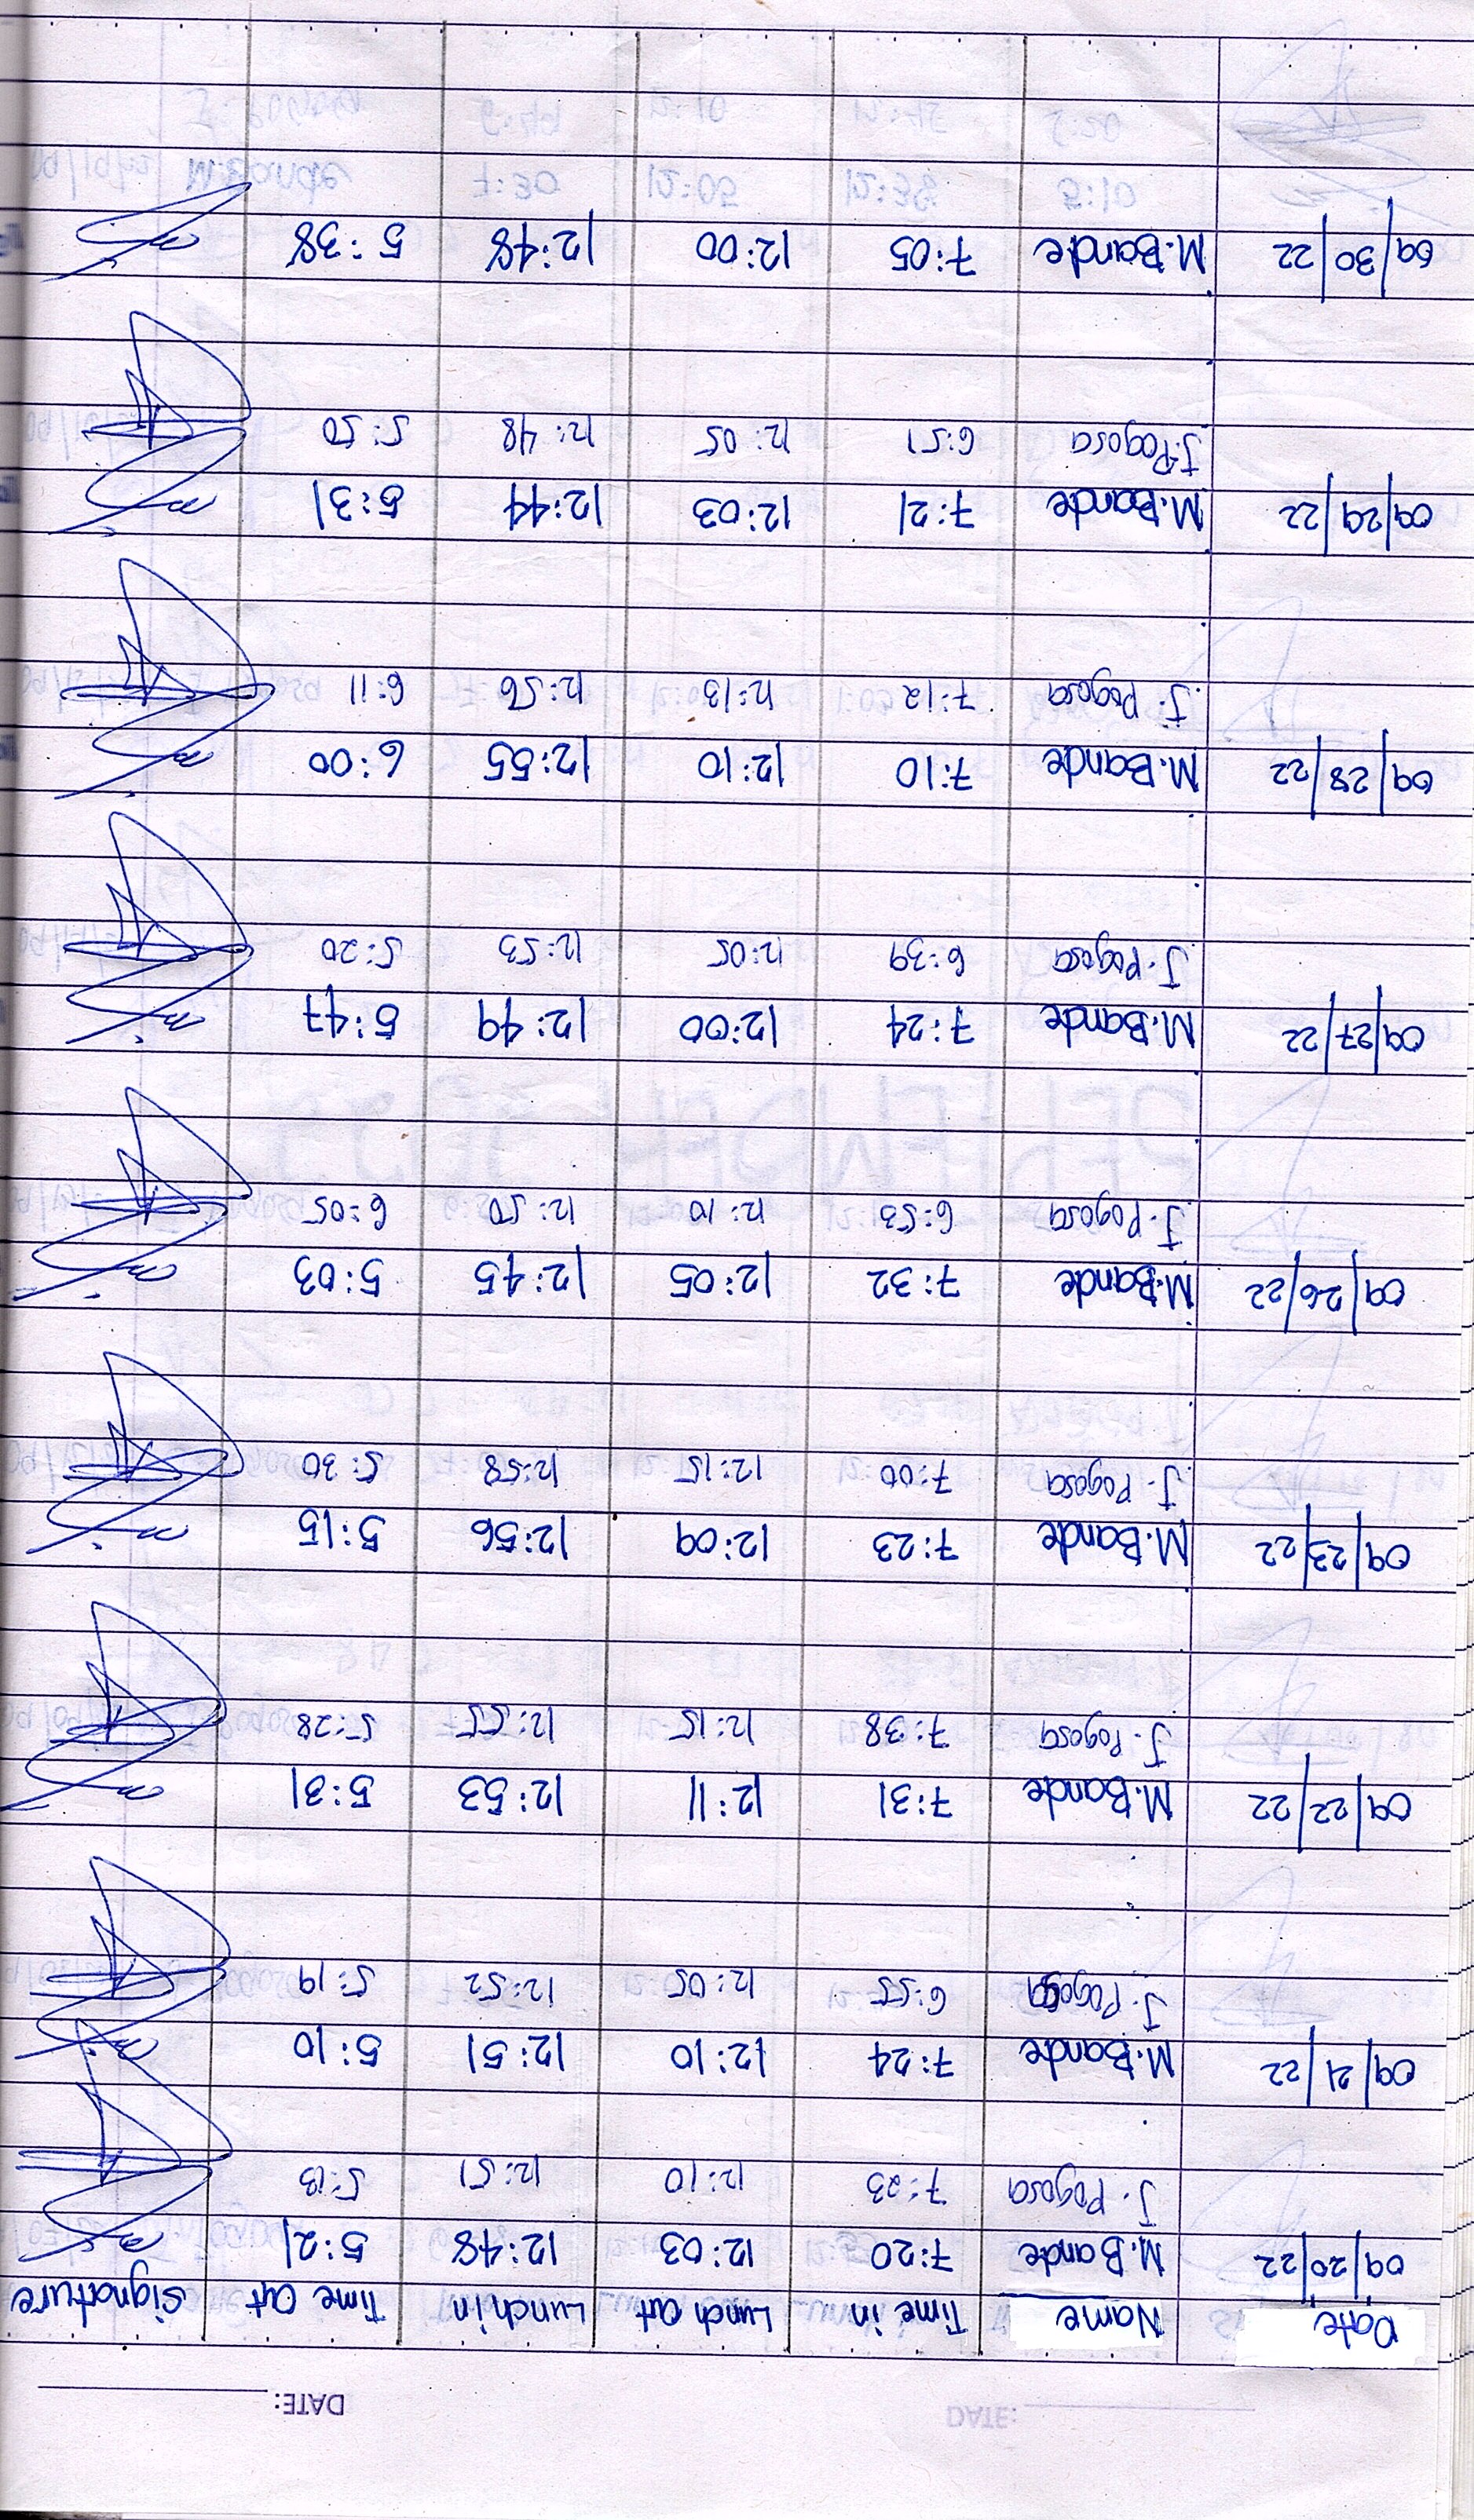 DATE: DATE:
Date Name Time in Lunch out Lunch in Time out Signature
09/20/22 M.Bande 7:20 12:03 12:48 5:21
J. Pogosa 7:23 12:10 12:51 5:13
09/21/22 M.Bande 7:24 12:10 12:51 5:10
J. Pogosa 6:55 12:05 12:52 5:19
09/22/22 M.Bande 7:31 12:11 12:53 5:31
J. Pogosa 7:38 12:15 12:55 5:28
09/23/22 M.Bande 7:23 12:09 12:56 5:15
J. Pogosa 7:00 12:15 12:58 5:30
09/26/22 M.Bande 7:32 12:05 12:45 5:03
J. Pogosa 6:53 12:10 12:50 6:05
09/27/22 M.Bande 7:24 12:00 12:49 5:47
J. Pogosa 6:39 12:05 12:53 5:20
09/28/22 M.Bande 7:10 12:10 12:55 6:00
J. Pogosa 7:12 12:13 12:56 6:11
09/29/22 M.Bande 7:21 12:03 12:44 5:31
J. Pogosa 6:51 12:05 12:48 5:50
09/30/22 M.Bande 7:05 12:00 12:48 5:38